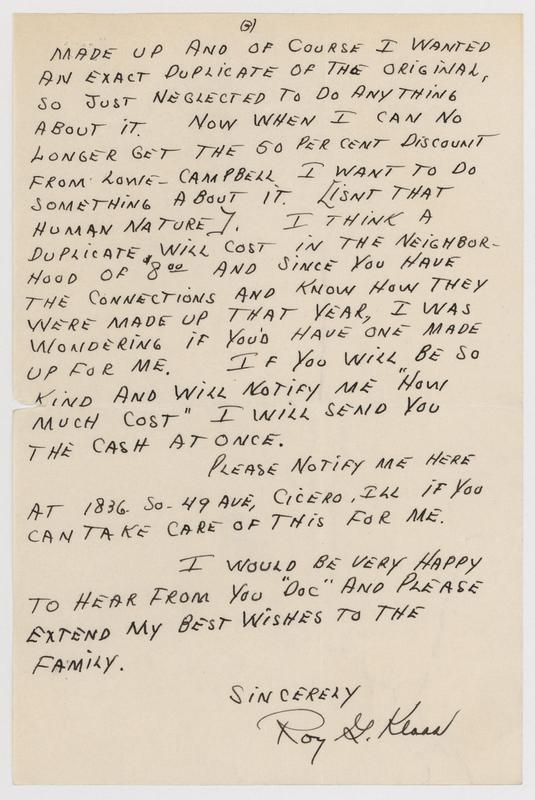 (3)
MADE UP AND OF COURSE I WANTED
AN EXACT DUPLICATE OF THE ORIGINAL,
SO JUST NEGLECTED TO DO ANYTHING
ABOUT IT. NOW WHEN I CAN NO
LONGER GET THE 50 PER CENT DISCOUNT
FROM LOWE-CAMPBELL I WANT TO DO
SOMETHING ABOUT IT. [ISNT THAT
HUMAN NATURE]. I THINK A
DUPLICATE WILL COST IN THE NEIGHBOR-
HOOD OF $8 00 AND SINCE YOU HAVE
THE CONNECTIONS AND KNOW HOW THEY
WERE MADE UP THAT YEAR, I WAS
WONDERING IF YOU'D HAVE ONE MADE
UP FOR ME. IF YOU WILL BE SO
KIND AND WILL NOTIFY ME "HOW
MUCH COST" I WILL SEND YOU
THE CASH AT ONCE.
PLEASE NOTIFY ME HERE
AT 1836 SO-49 AVE, CICERO, ILL IF YOU
CAN TAKE CARE OF THIS FOR ME.
I WOULD BE VERY HAPPY
TO HEAR FROM YOU "DOC" AND PLEASE
EXTEND MY BEST WISHES TO THE
FAMILY.
SINCERELY
Roy G. Klaas